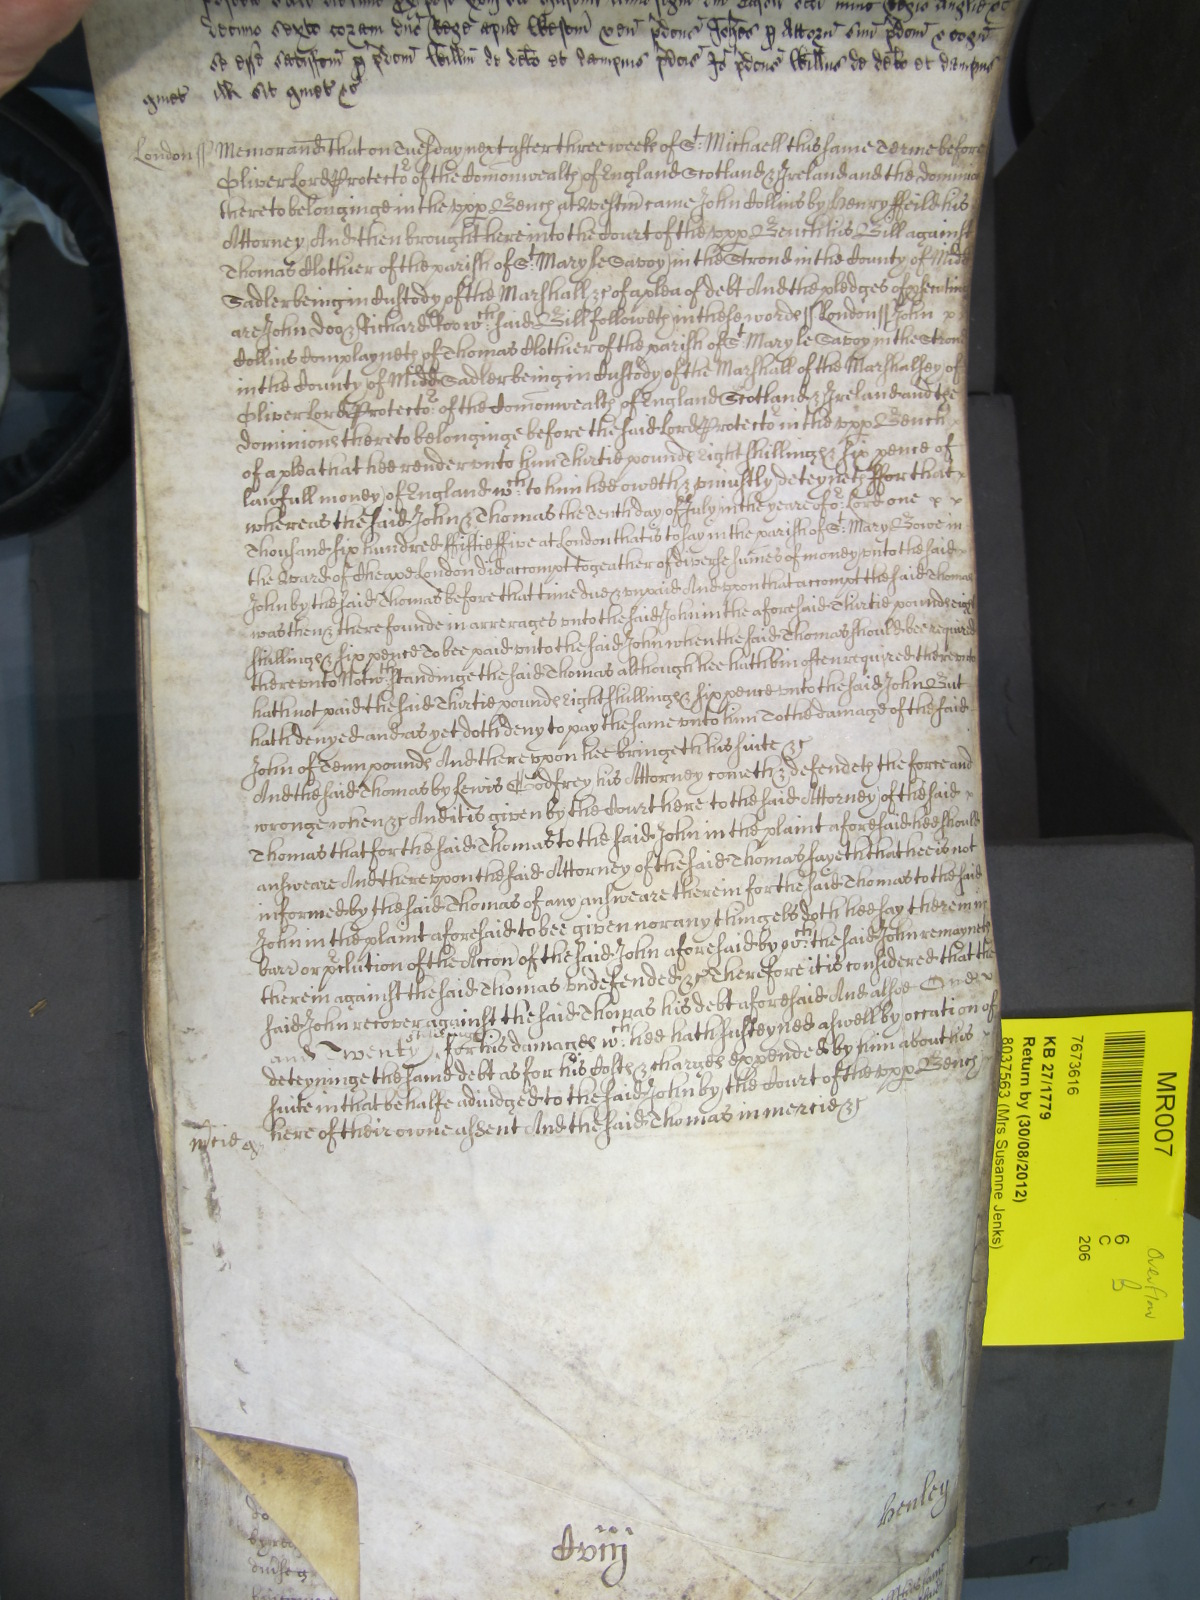 decimo sexto coram dno Rege apud Westm ven pdcus Johes p Attorn suu pdcm & cogn
se esse satisfcm p pdcm Willm de debo et dampnis pdcis Io pdcus Willus de debo et dampnis
quiet ill sit quiet &c
London // Memorand That on Tuesday next after three weeks of St: Michaell this same Terme before
Oliver Lord Protector of the Comonwealth of England Scotland & Ireland and the dominions
thereto belonginge in the upp Bench at Westm came John Collins by Henry ffeild his
Attorney And then brought here into the Court of the upp Bench his Bill against
Thomas Clothier of the parish of St Mary le Savoy in the Strond in the County of Midd
Sadler being in Custody of the Marshall &c of a plea of debt And the pledges of psecuting
are John Doo & Richard Roo wch: said Bill followeth in these words // London // John x x
Collins Complayneth of Thomas Clothier of the parish of St Mary le Savoy in the Strond
in the County of Midd Sadler being in Custody of the Marshall of the Marshalsey of
Oliver Lord Protector of the Comonwealth of England Scotland & Ireland and the
dominions thereto belonginge before the said Lord Protector in the upp Bench x
of a plea that hee render unto him Thirtie pounds eight shillings & six pence of
lawfull money of England wch: to him hee oweth & uniustly deteyneth ffor that x
whereas the said John & Thomas the Tenth day of July in the yeare of or: Lord one x x
Thousand six hundred ffiftie ffive at London that is to say in the parish of St: Mary Bowe in
the Ward of Cheape London did accompt togeather of diverse sumes of money unto the said x
John by the said Thomas before that time due & unpaid And upon that accompt the said Thomas
was then & there founde in arrerages unto the said John in the aforesaid Thirtie pounds eight
shillings & six pence To bee paid unto the said John when the said Thomas should bee required
thereunto Notwthstandinge the said Thomas although hee hath bin often required thereunto
hath not paid the said Thirtie pounds eight shillings & six pence unto the said John But
hath denyed and as yet doth deny to pay the same unto him To the damage of the said
John of Tenn pounds And thereupon hee bringeth his suite &c
And the said Thomas by Lewis Godfrey his Attorney cometh & defendeth the force and
wronge when &c And it is given by the Court here to the said Attorney of the said x
Thomas that for the said Thomas to the said John in the plaint aforesaid hee should
answeare And thereupon the said Attorney of the said Thomas sayeth that hee is not
informed by the said Thomas of any answeare therein for the said Thomas to the said
John in the plaint aforesaid to bee given nor any thing els doth hee say therein in
barr or pclution of the Accon of the said John aforesaid by wch: the said John remayneth
therein against the said Thomas undefended &c Therefore it is considered that the
said John recover against the said Thomas his debt aforesaid And alsoe One x
and Twenty shillings for his damages wch: hee hath susteyned aswell by occation of
deteyninge the same debt as for his Costs & charges expended by him about his x
suite in that behalfe adiudged to the said John by the Court of the upp Bench
here of their owne assent And the said Thomas in mercie &c
mcie
Henley
Cviij
MR007
7673616
KB 27/1779
Return by (30/08/2012)
8037563 (Mrs Susanne Jenks)
6
C
206
Overflow
B